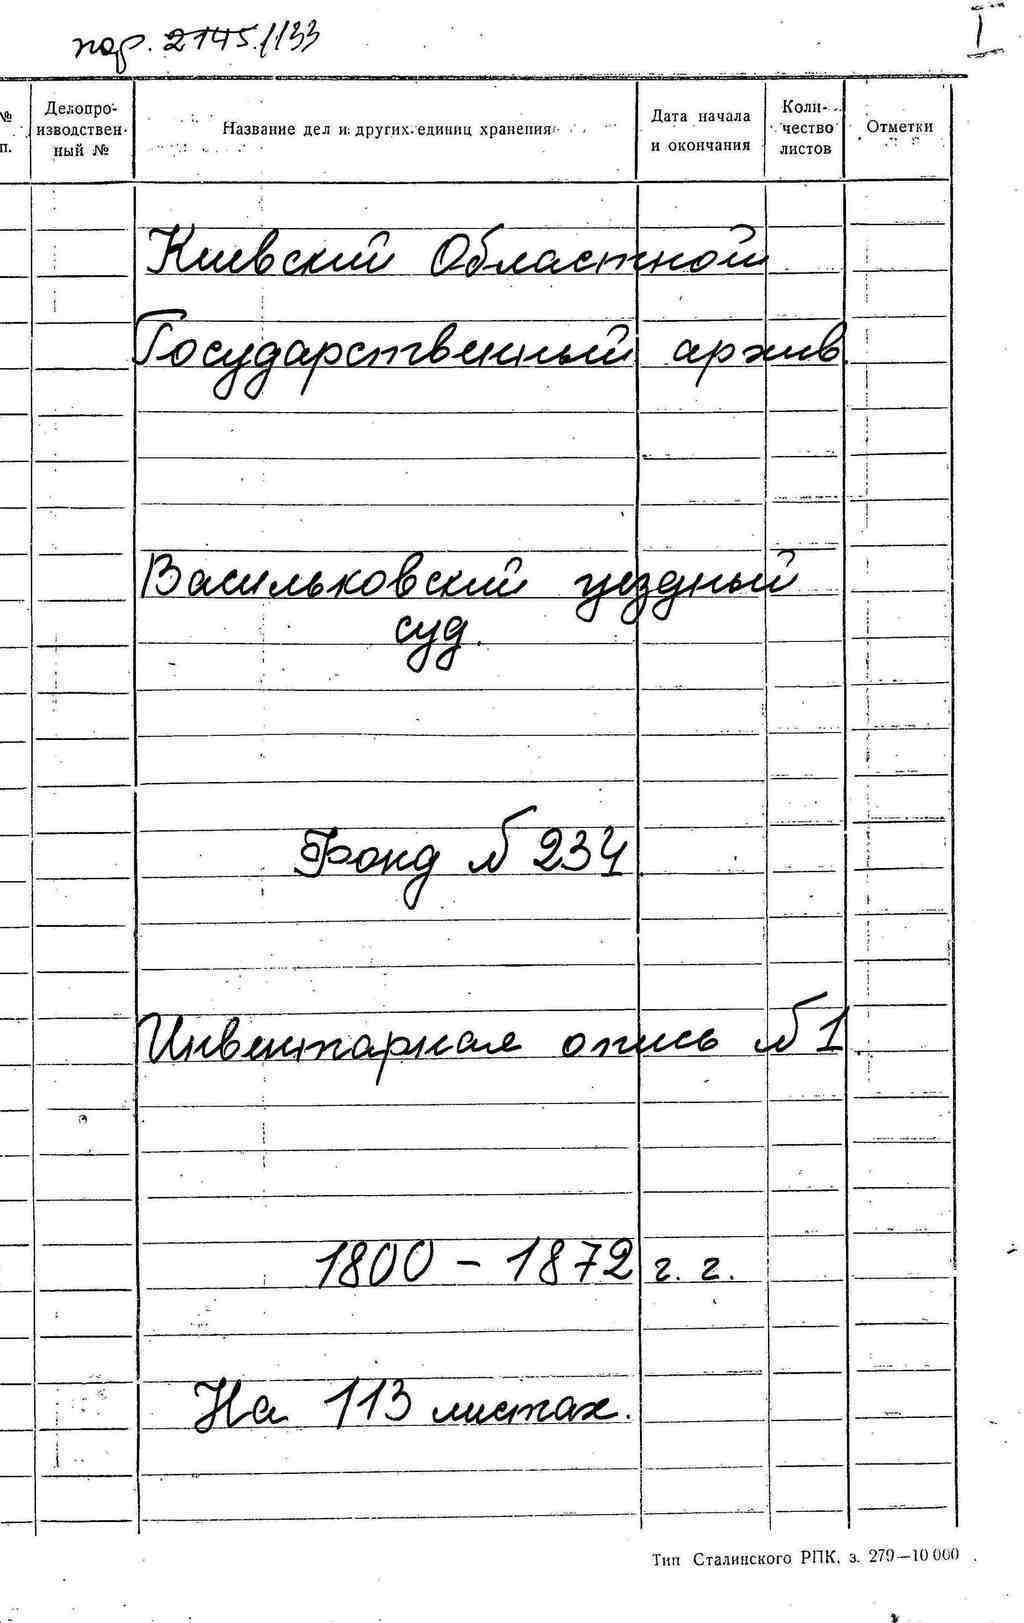 пор. 2145./133
I
№
п.
Делопро-
изводствен-
ный №
Название дел и других единиц хранения
Дата начала
и окончания
Коли-
чество
листов
Отметки
Киевский Областной
Государственный архив.
Васильковский уездный
суд.
Фонд № 234
Инвентарная опись № 1
1800 – 1872 г. г.
На 113 листах.
Тип Сталинского РПК, з. 279—10 000